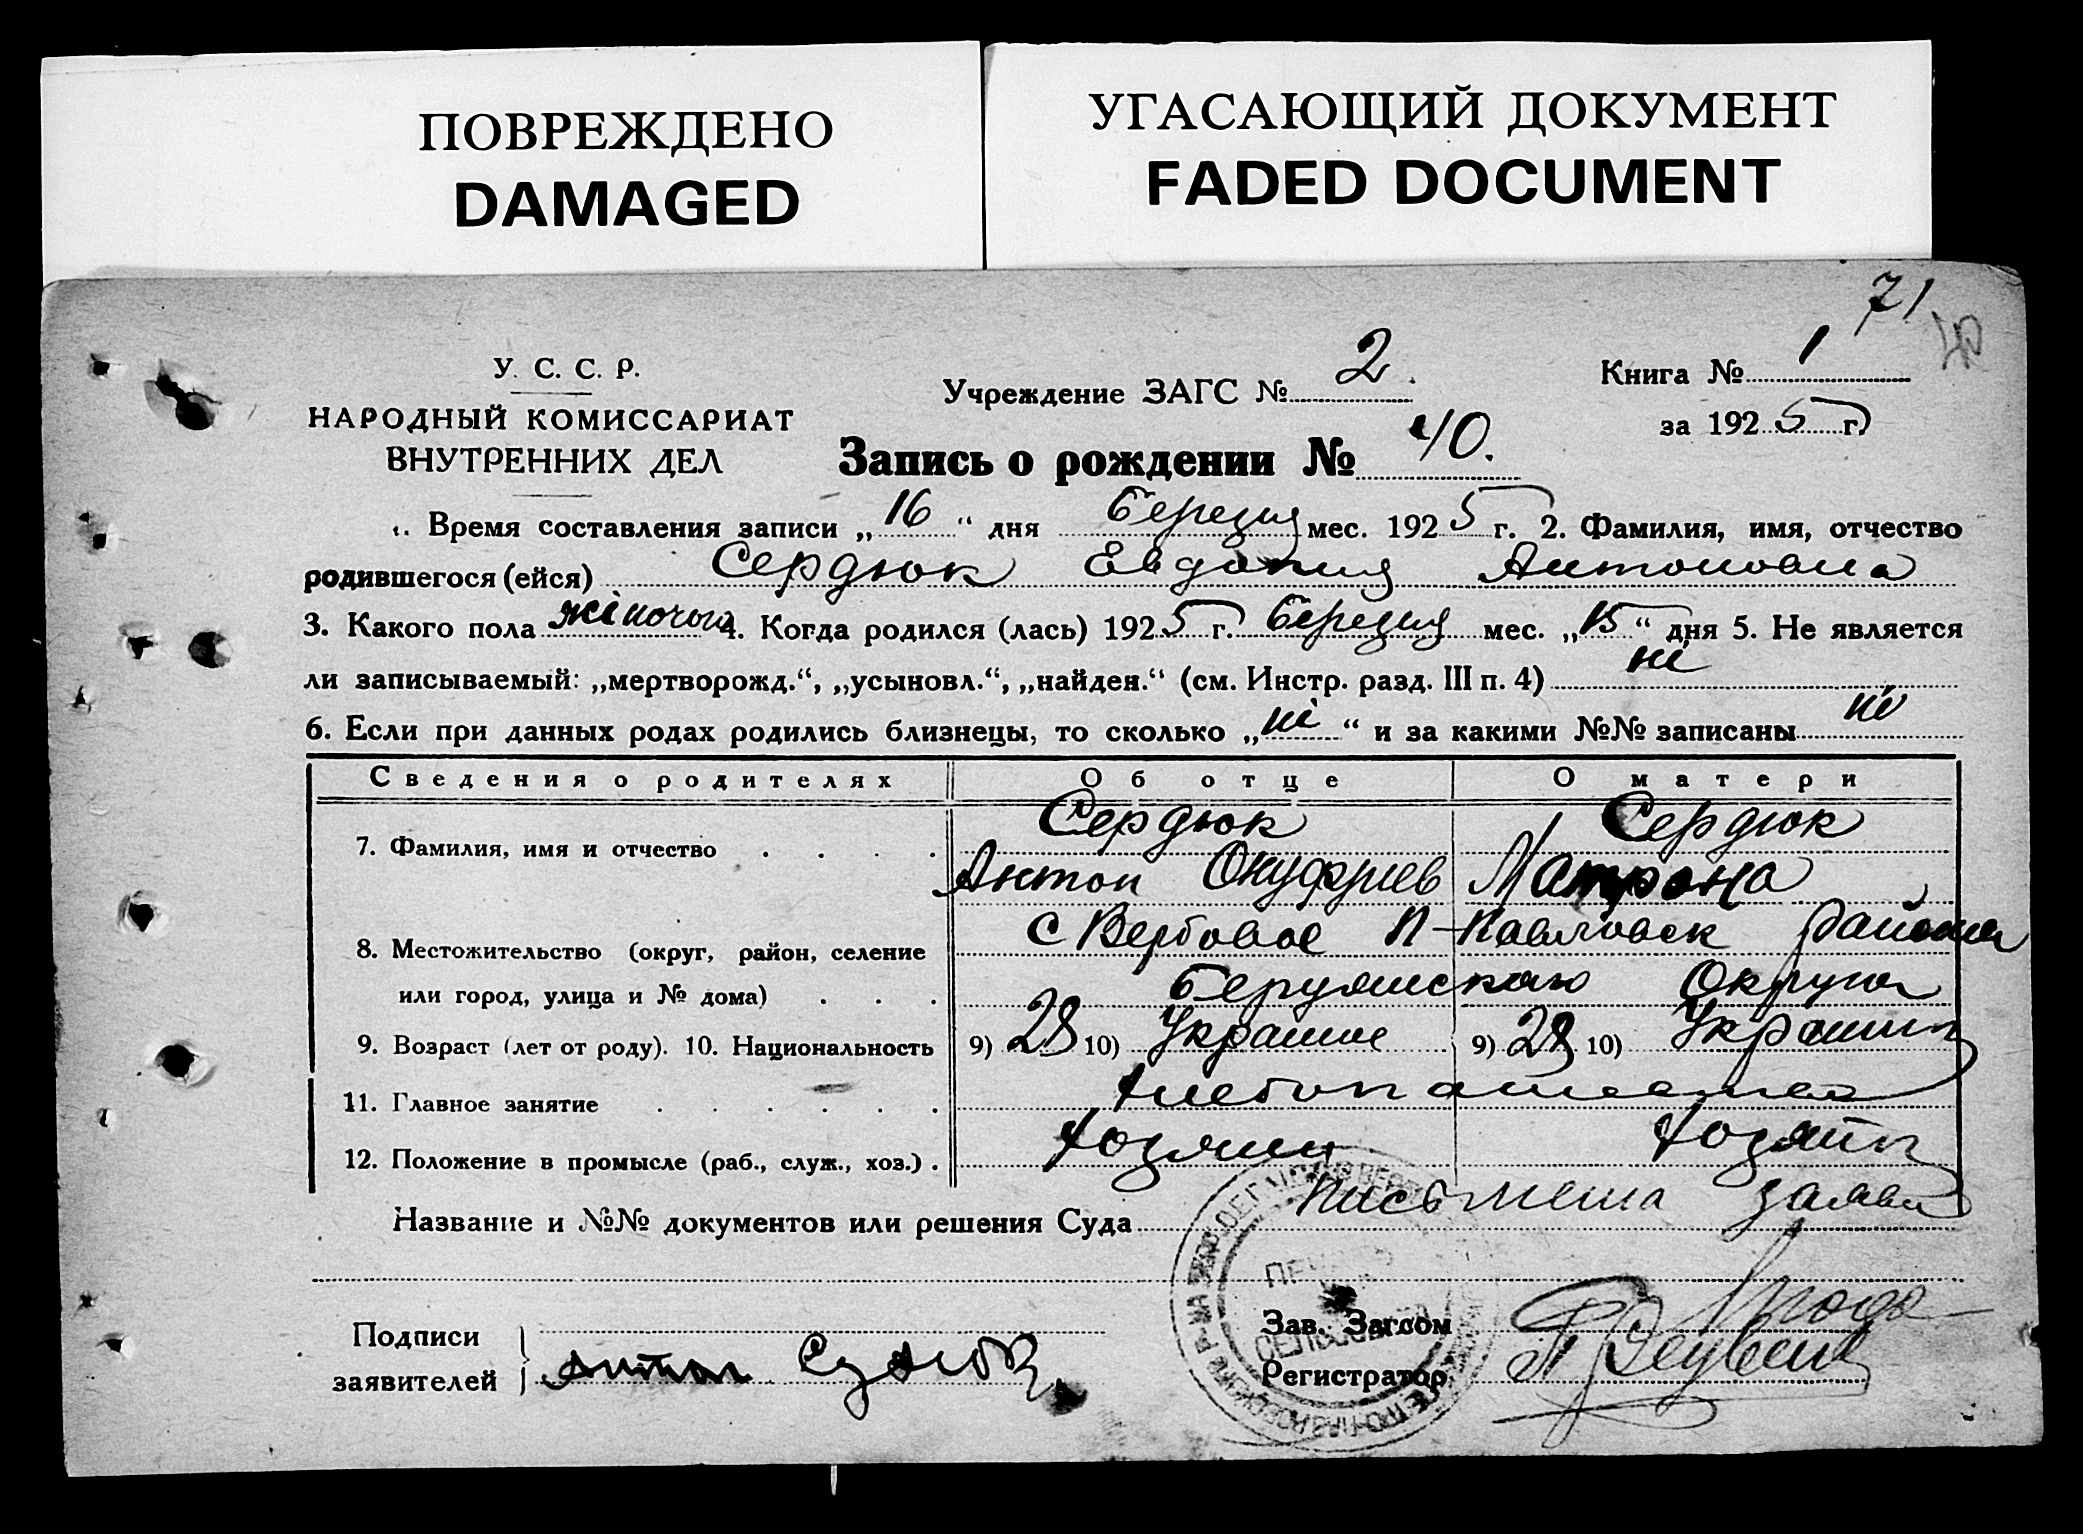 ПОВРЕЖДЕНО
DAMAGED
УГАСАЮЩИЙ ДОКУМЕНТ
FADED DOCUMENT
71
40
У. С. С. Р.
НАРОДНЫЙ КОМИССАРИАТ
ВНУТРЕННИХ ДЕЛ
Учреждение ЗАГС № 2.
Книга № 1
за 1925 г.
Запись о рождении № 40.
1. Время составления записи „16“ дня березня мес. 1925 г. 2. Фамилия, имя, отчество
родившегося (ейся) Сердюк Евдокия Антоновна
3. Какого пола жіночого 4. Когда родился (лась) 1925 г. березня мес. „15“ дня 5. Не является
ли записываемый: „мертворожд.“, „усыновл.“, „найден.“ (см. Инстр. разд. III п. 4) ні
6. Если при данных родах родились близнецы, то сколько „ні“ и за какими №№ записаны ні
Сведения о родителях Об отце О матери
Сердюк Сердюк
7. Фамилия, имя и отчество
Антон Онуфриев Матрона
8. Местожительство (округ, район, селение с Вербовое П-Павловск района
или город, улица и № дома) Округа
9. Возраст (лет от роду). 10. Национальность 9) 28 10) Украине 9) 28 10) Украин
11. Главное занятие
12. Положение в промысле (раб., служ., хоз.) Хозяин
Название и №№ документов или решения Суда письмена заява
Подписи
заявителей Антон Сердюк
Зав. Загсом
Регистратор